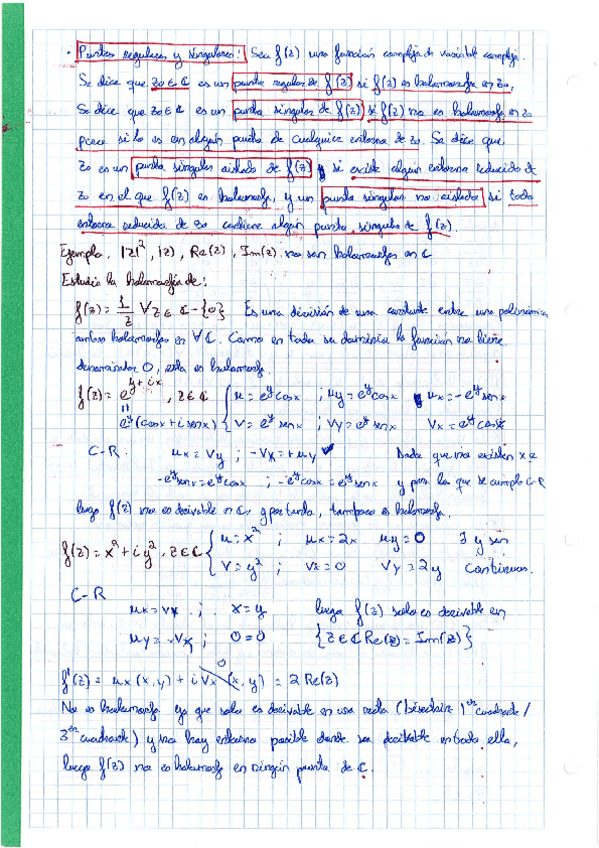 · Puntos regulares y singulares: Sea f(z) una función compleja de variable compleja.
Se dice que z₀ ∈ ℂ es un punto regular de f(z) si f(z) es holomorfa en z₀.
Se dice que z₀ ∈ ℂ es un punto singular de f(z) si f(z) no es holomorfa en z₀
pero si lo es en algún punto de cualquier entorno de z₀. Se dice que
z₀ es un punto singular aislado de f(z) y si existe algún entorno reducido de
z₀ en el que f(z) es holomorfa, y un punto singular no aislado si todo
entorno reducido de z₀ contiene algún punto singular de f(z).
Ejemplo. |z|², |z|, Re(z), Im(z) no son holomorfas en ℂ
Estudia la holomorfía de:
f(z) = 1/z ∀z ∈ ℂ - {0} Es una división de una constante entre una polinómica
ambas holomorfas en ∀ℂ. Como en todo su dominio la función no tiene
denominador 0, esta es holomorfa.
f(z) = e^{y+ix}, z ∈ ℂ { u = e^y cos x ; u_y = e^y cos x u_x = -e^y sen x
e^y (cos x + i sen x) { v = e^y sen x ; v_y = e^y sen x v_x = e^y cos x
C-R. u_x = v_y ; -v_x = + u_y Dado que no existen x e
-e^y sen x = e^y cos x ; -e^y cos x = e^y sen x y para los que se cumpla C-R
luego f(z) no es derivable en ℂ, y por tanto, tampoco es holomorfa.
f(z) = x² + i y², z ∈ ℂ { u = x² ; u_x = 2x u_y = 0 ∃ y son
{ v = y² ; v_x = 0 v_y = 2y continuas.
C-R
u_x = v_x ; x = y luego f(z) solo es derivable en
u_y = -v_x ; 0 = 0 {z ∈ ℂ Re(z) = Im(z)}
f'(z) = u_x (x, y) + i v_x (x, y) 0 = 2 Re(z)
No es holomorfa ya que solo es derivable en una recta (bisectriz 1er cuadrante /
3er cuadrante) y no hay entorno posible donde sea derivable en todo ella,
luego f(z) no es holomorfa en ningún punto de ℂ.